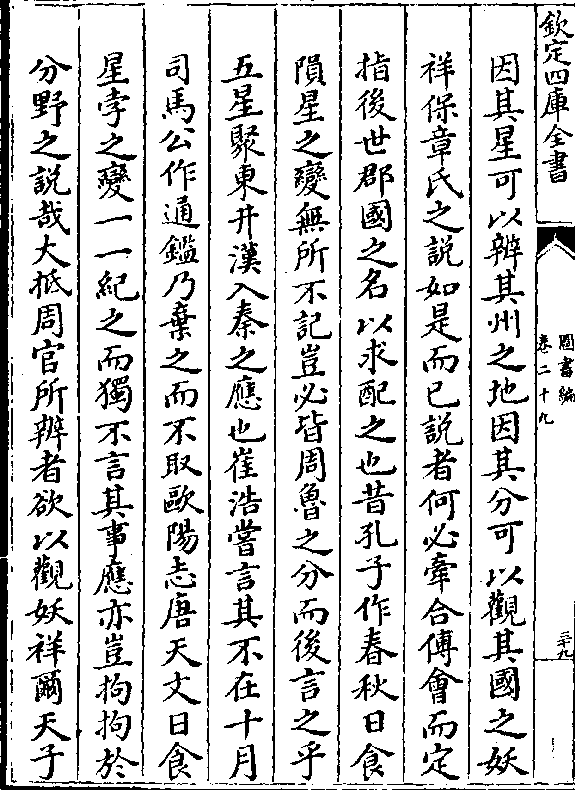 欽定四庫全書
圖書編
卷二十九
三十九
因其星可以辨其州之地因其分可以觀其國之妖
祥保章氏之說如是而已說者何必牽合傅會而定
指後世郡國之名以求配之也昔孔子作春秋日食
隕星之變無所不記豈必皆周魯之分而後言之乎
五星聚東井漢入秦之應也崔浩嘗言其不在十月
司馬公作通鑑乃棄之而不取歐陽志唐天文日食
星孛之變一一紀之而獨不言其事應亦豈拘拘於
分野之說哉大抵周官所辨者欲以觀妖祥爾天子